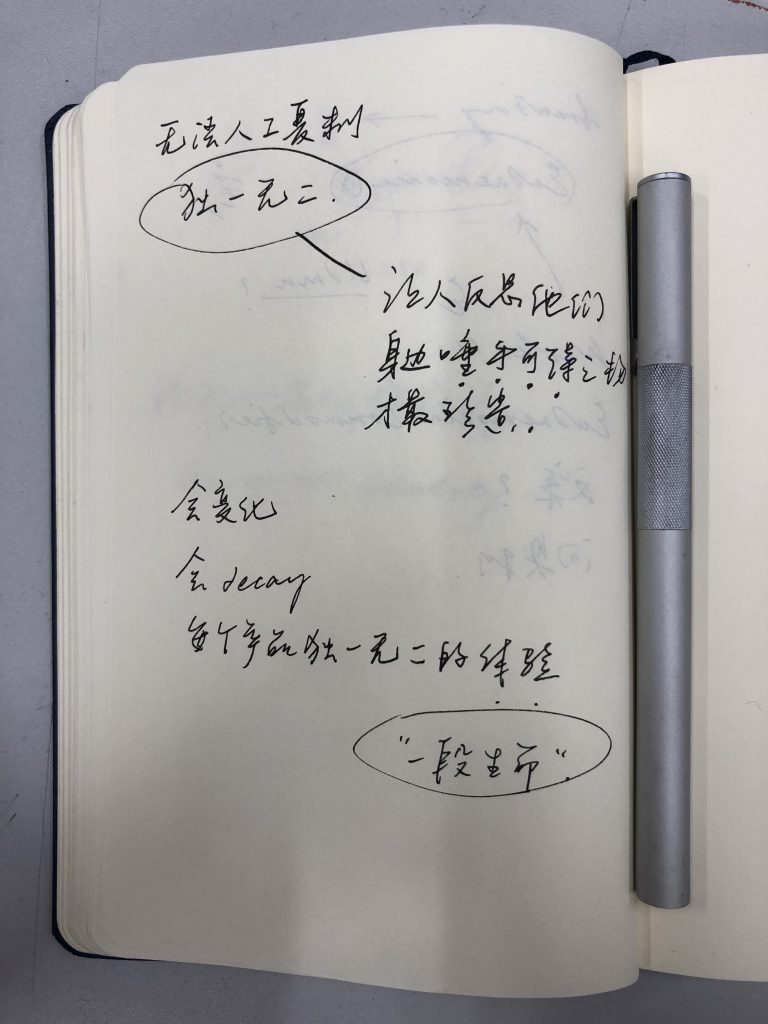 无法人工复制
独一无二.
让人反思他们
身边唾手可得之物
才最珍贵..
会变化
会decay
每个产品独一无二的体验
"一段生命"